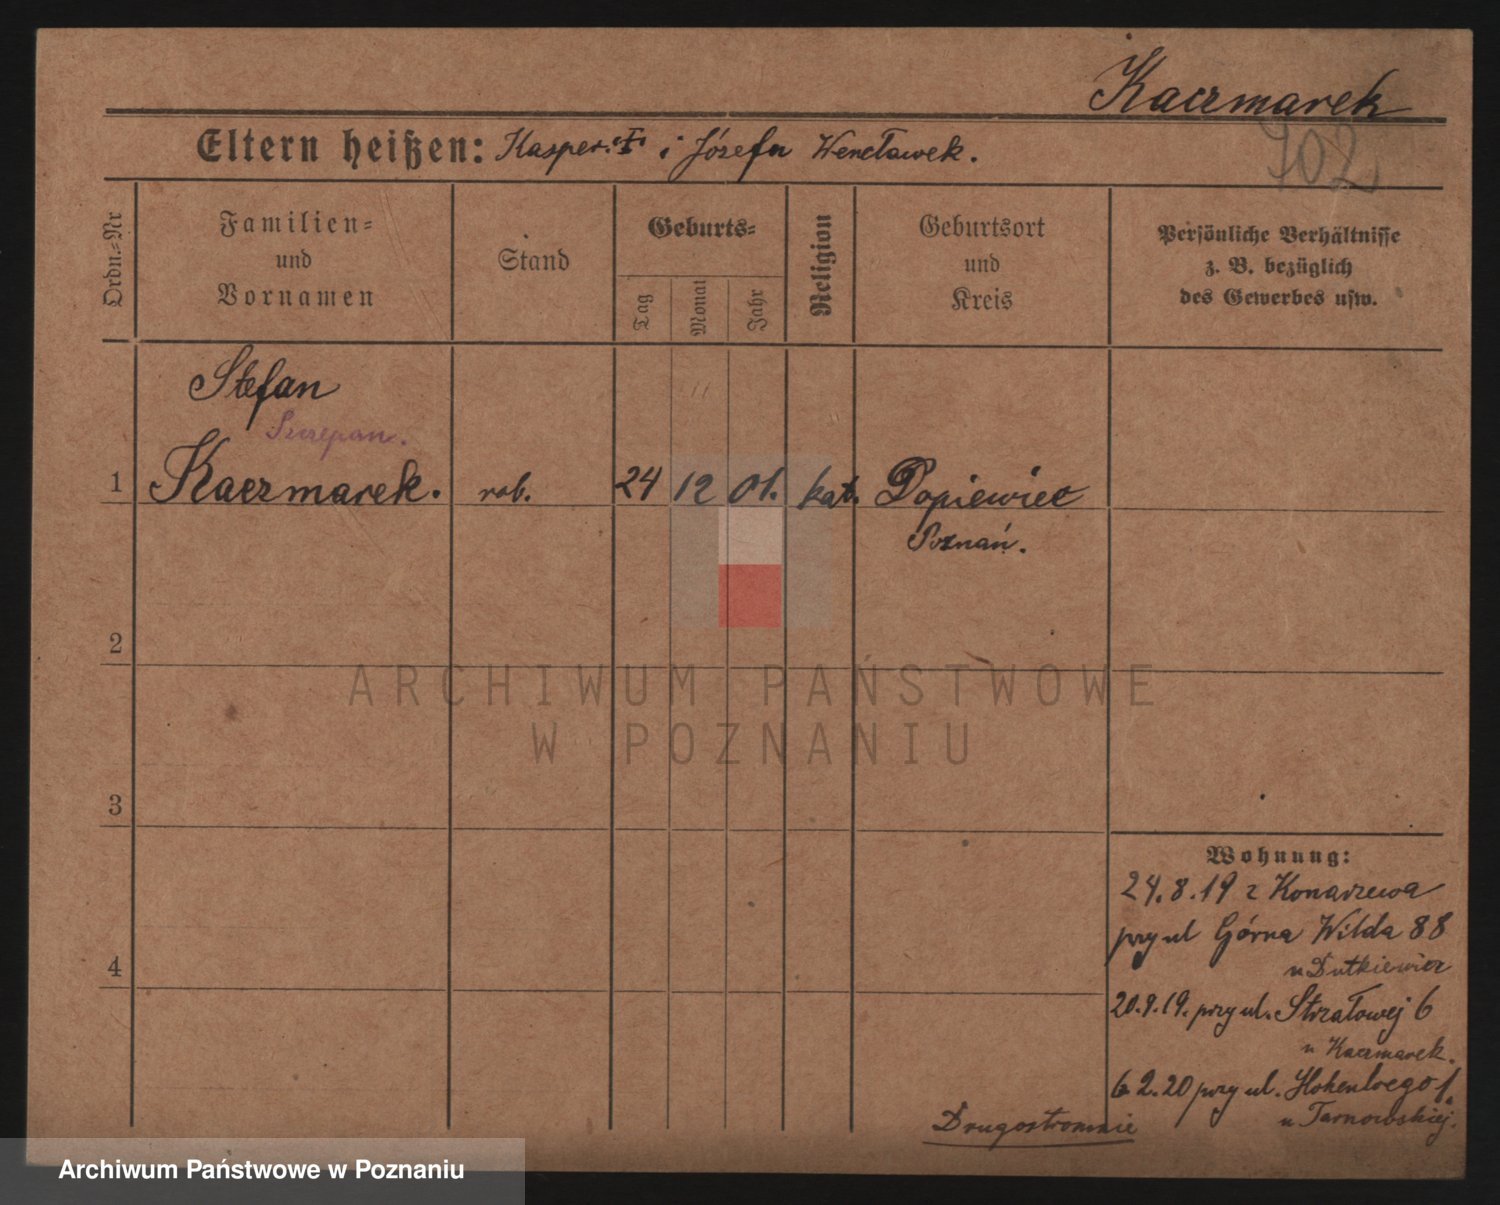 Kaczmarek
702
Eltern heißen: Kasper i Józefa Wencławek.
Ordn.=Nr
Familien=
und
Vornamen
Stand
Geburts=
Tag
Monat
Jahr
Religion
Geburtsort
und
Kreis
Persönliche Verhältnisse
z. B. bezüglich
des Gewerbes usw.
Stefan
Szczepan.
1 Kaczmarek. rob. 24 12 01. kat. Dopiewiec
Poznań.
2
3
4
Wohnung:
24.8.19 z Konarzewa
przy ul Górna Wilda 88
u Dutkiewicz
20.9.19. przy ul. Strzałowej 6
u Kaczmarek.
6 2.20 przy ul. Hohenloego 1.
u Tarnowskiej.
Drugostronnie
ARCHIWUM PAŃSTWOWE
W POZNANIU
Archiwum Państwowe w Poznaniu